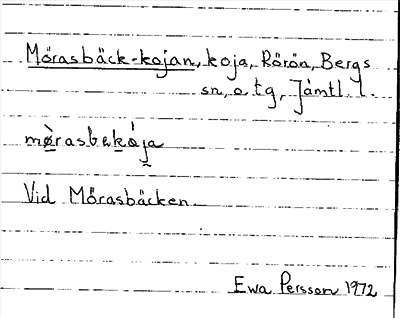 Mörasbäck-kojan, koja, Rörön, Bergs
sn, o. tg, Jämtl. l.
mø̀rasbɛkója
Vid Mörasbäcken
Ewa Persson 1972